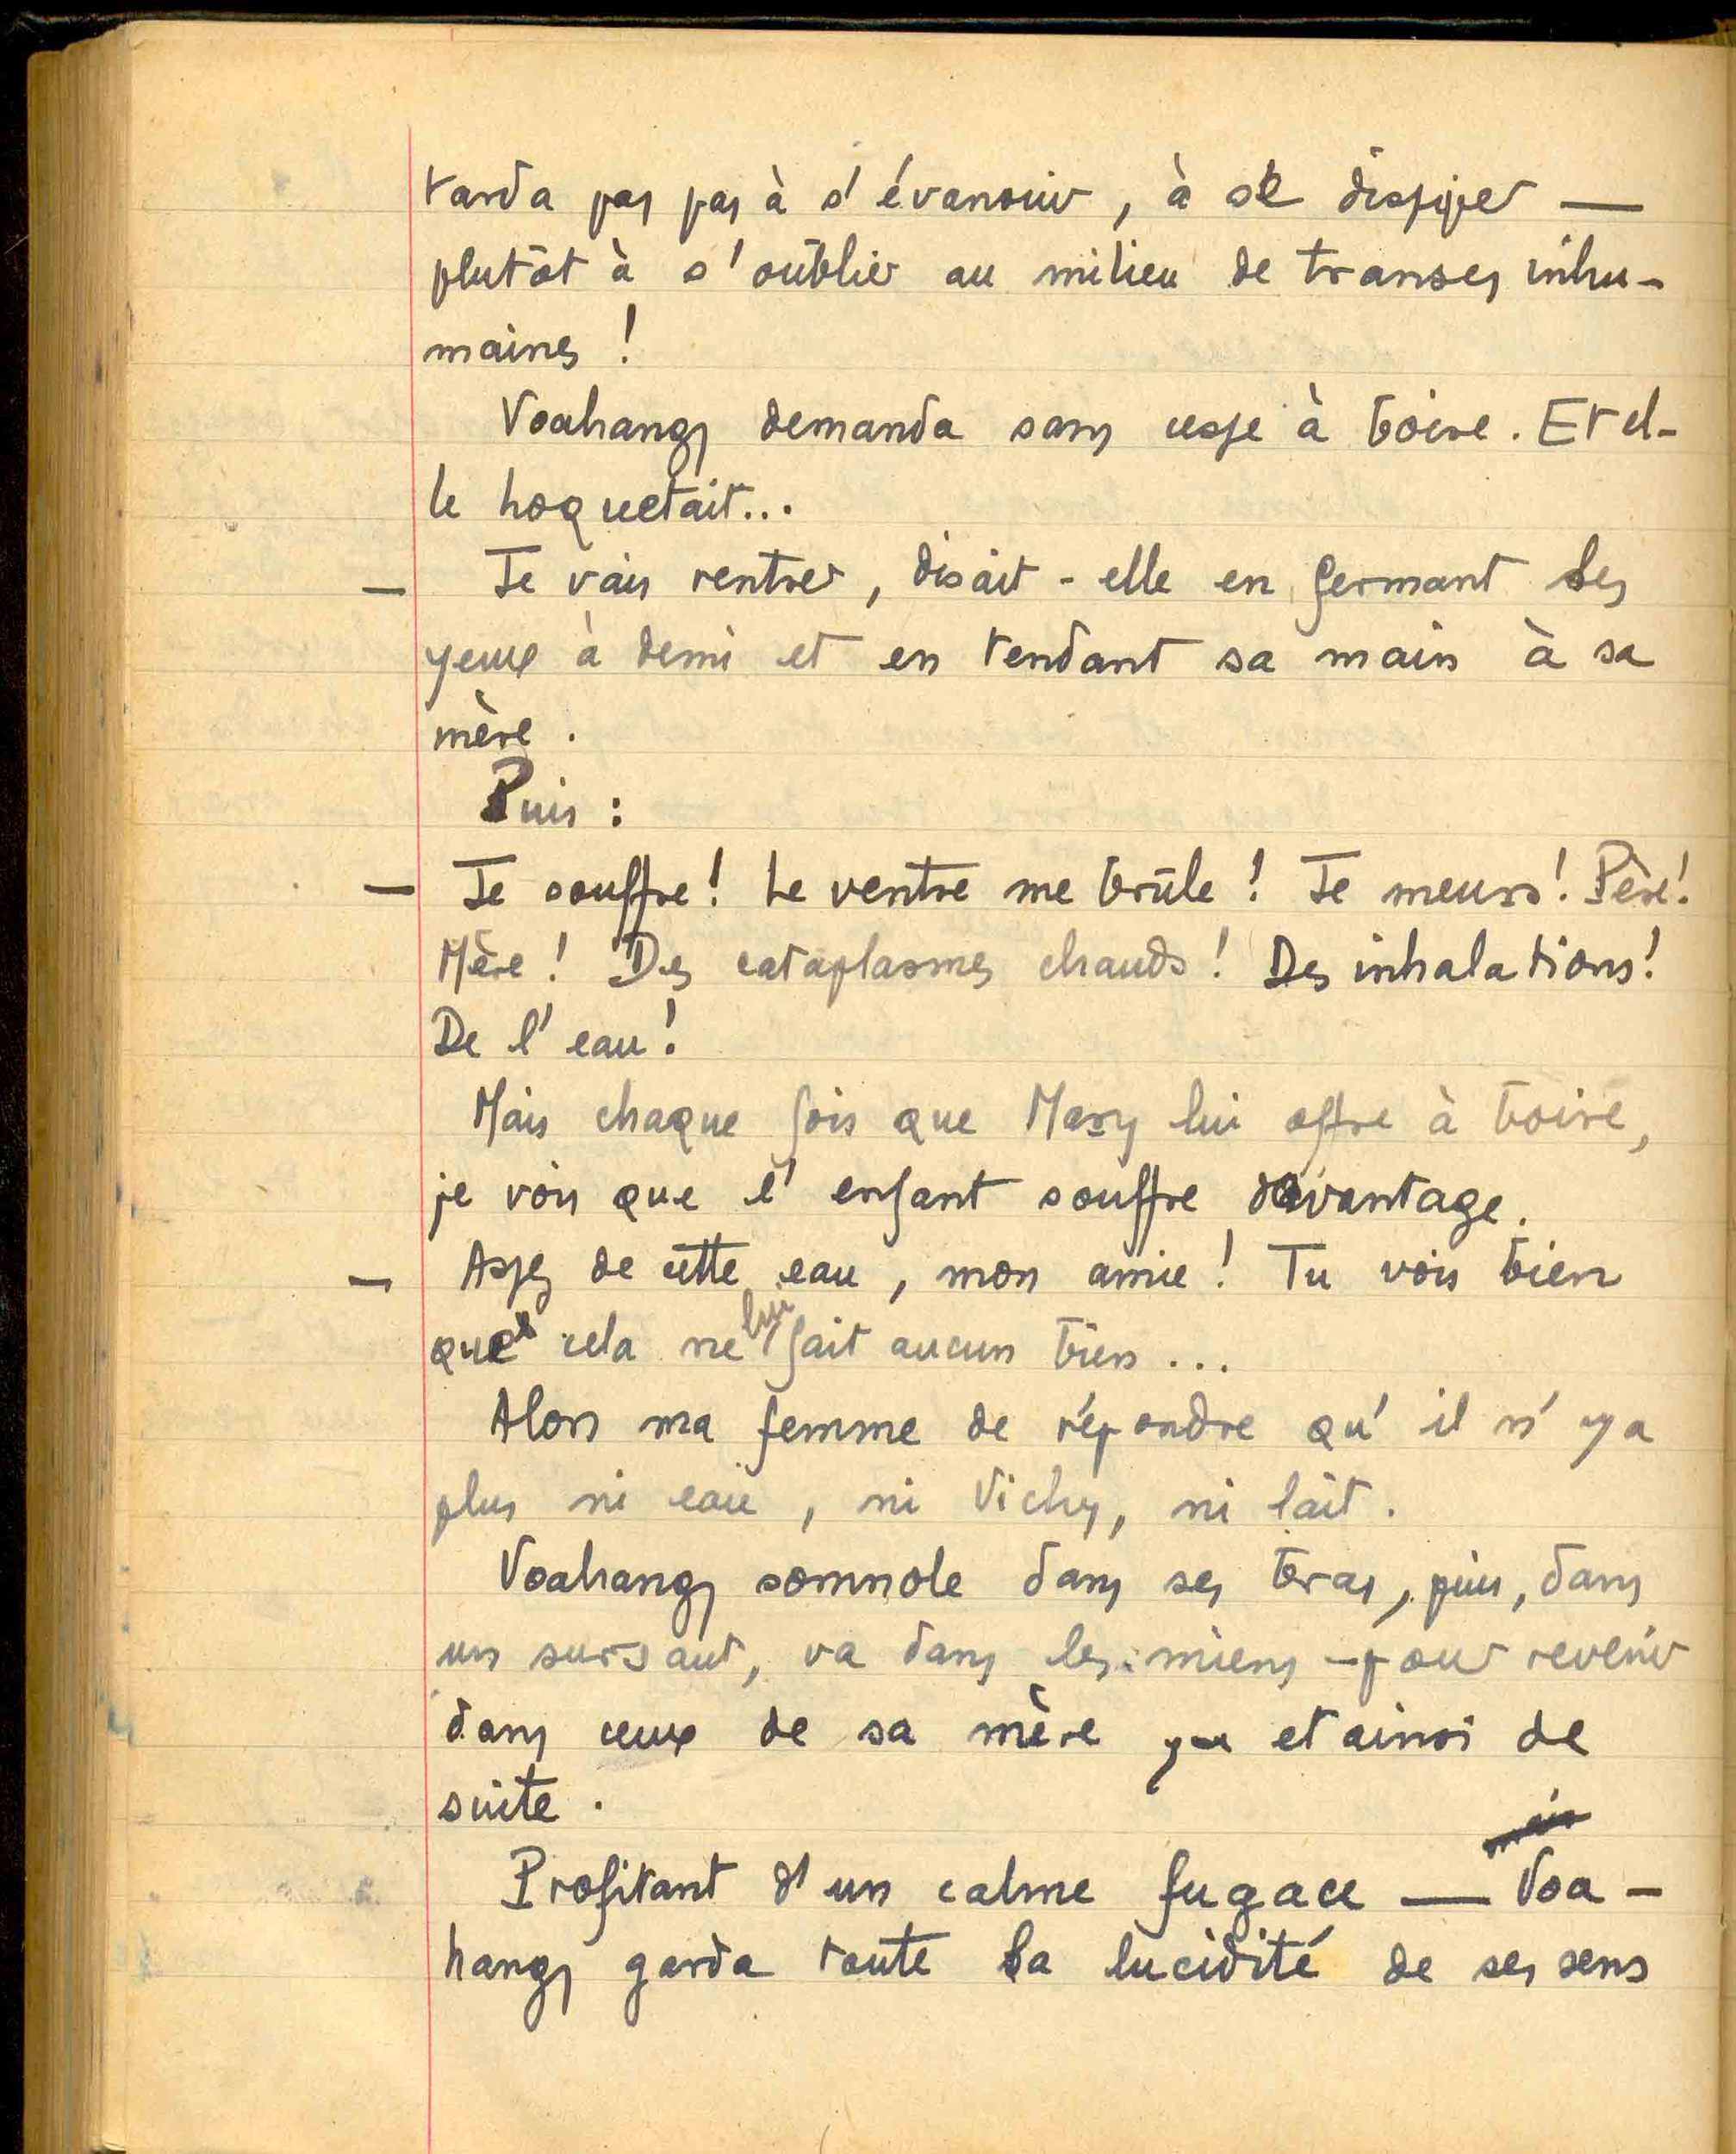 tarda pas pas à s'évanouir, à se dissiper —
plutôt à s'oublier au milieu de transes inhu-
maines !
Voahangy demanda sans cesse à boire. Et el-
le hoquetait...
— Je vais rentrer, disait-elle en fermant les
yeux à demi et en tendant sa main à sa
mère.
Puis :
— Je souffre! Le ventre me brûle! Je meurs! Père!
Mère! Des cataplasmes chauds! Des inhalations!
De l'eau!
Mais chaque fois que Mary lui offre à boire,
je vois que l'enfant souffre davantage.
— Assez de cette eau, mon amie! Tu vois bien
que cela ne lui fait aucun bien...
Alors ma femme de répondre qu'il n'y a
plus ni eau, ni Vichy, ni lait.
Voahangy somnole dans ses bras, puis, dans
un sursaut, va dans les miens – pour revenir
dans ceux de sa mère et ainsi de
suite.
Profitant d'un calme fugace — Voa-
hangy garda toute la lucidité de ses sens